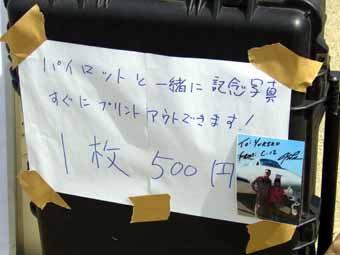 パイロットと一緒に記念写真
すぐにプリントアウトできます!
1枚 500円
TO: YUKIKO
FROM: C-12